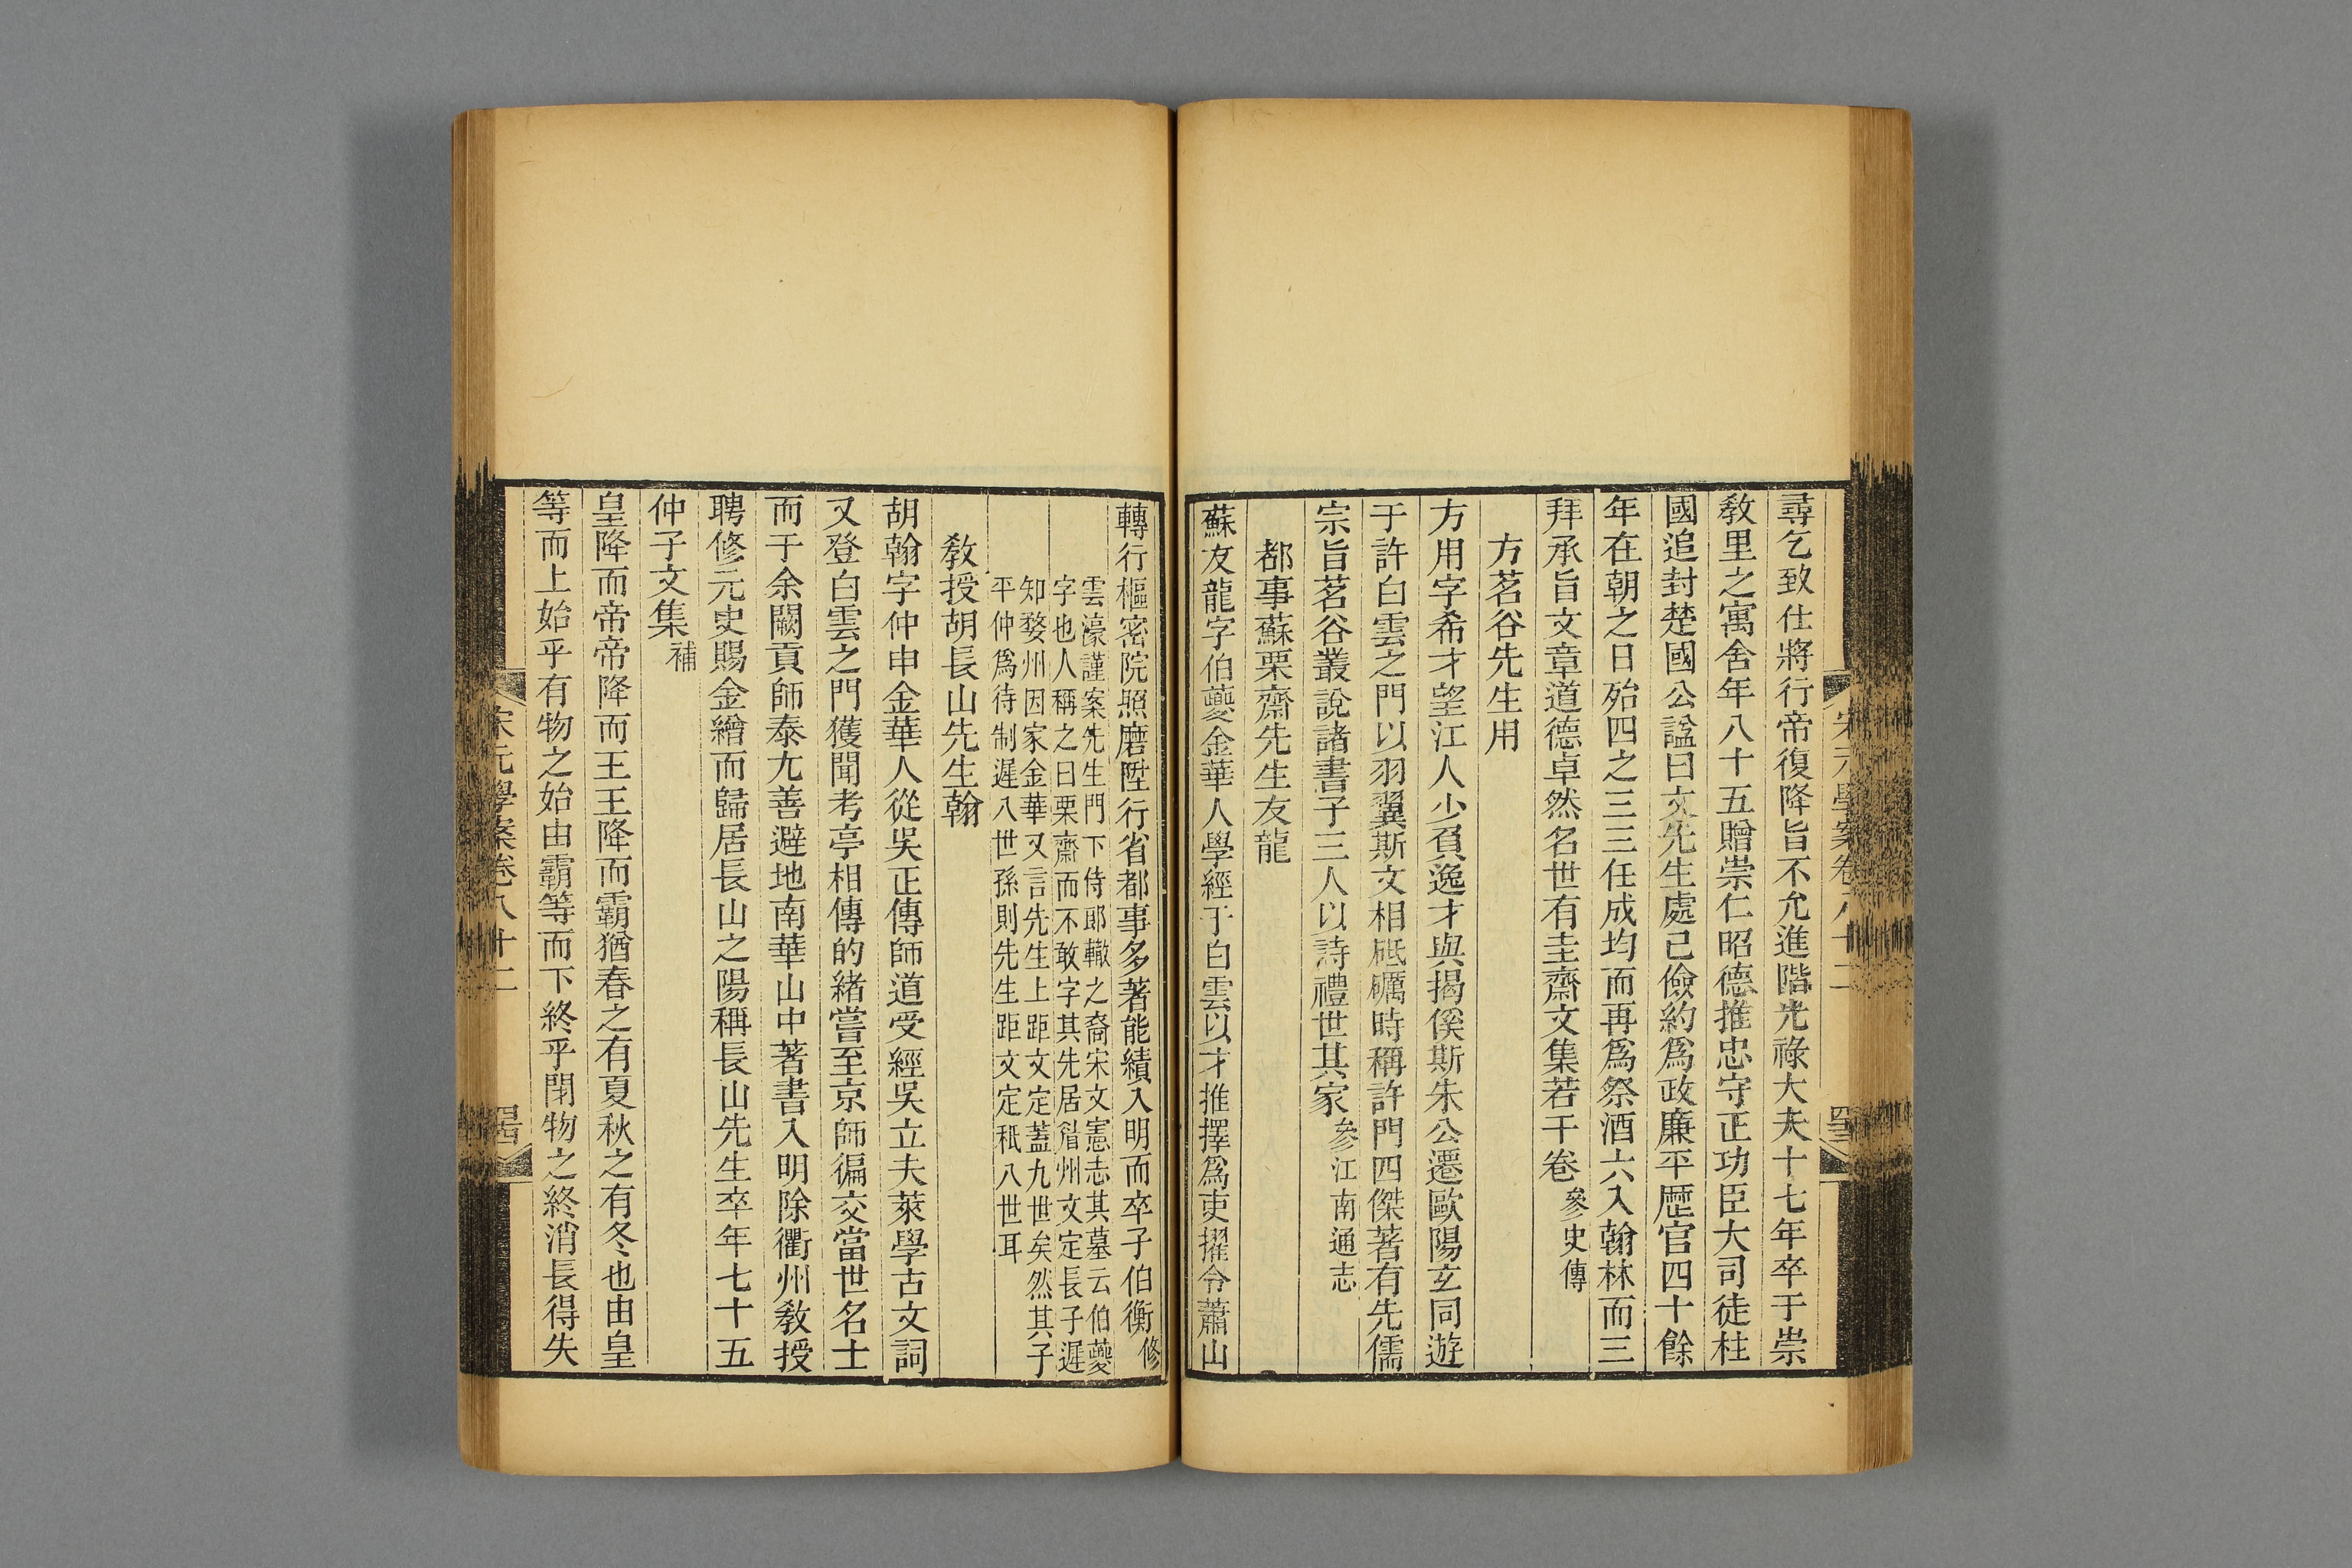 尋乞致仕將行帝復降旨不允進階光祿大夫十七年卒于崇
敎里之寓舍年八十五贈崇仁昭德推忠守正功臣大司徒柱
國追封楚國公諡曰文先生處己儉約爲政廉平歷官四十餘
年在朝之日殆四之三三任成均而再爲祭酒六入翰林而三
拜承旨文章道德卓然名世有圭齋文集若干卷參史傳
方茗谷先生用
方用字希才望江人少負逸才與揭傒斯朱公遷歐陽玄同遊
于許白雲之門以羽翼斯文相砥礪時稱許門四傑著有先儒
宗旨茗谷叢說諸書子三人以詩禮世其家參江南通志
都事蘇栗齋先生友龍
蘇友龍字伯夔金華人學經于白雲以才推擇爲吏擢令蕭山
轉行樞密院照磨陞行省都事多著能績入明而卒子伯衡修
雲濠謹案先生門下侍郎轍之裔宋文憲志其墓云伯夔
字也人稱之曰栗齋而不敢字其先居眉州文定長子遲
知婺州因家金華又言先生上距文定蓋九世矣然其子
平仲爲待制遲八世孫則先生距文定秖八世耳
敎授胡長山先生翰
胡翰字仲申金華人從吳正傳師道受經吳立夫萊學古文詞
又登白雲之門獲聞考亭相傳的緒嘗至京師徧交當世名士
而于余闕貢師泰尤善避地南華山中著書入明除衢州敎授
聘修元史賜金繒而歸居長山之陽稱長山先生卒年七十五
仲子文集補
皇降而帝帝降而王王降而霸猶春之有夏秋之有冬也由皇
等而上始乎有物之始由霸等而下終乎閉物之終消長得失
宋元學案卷八十二